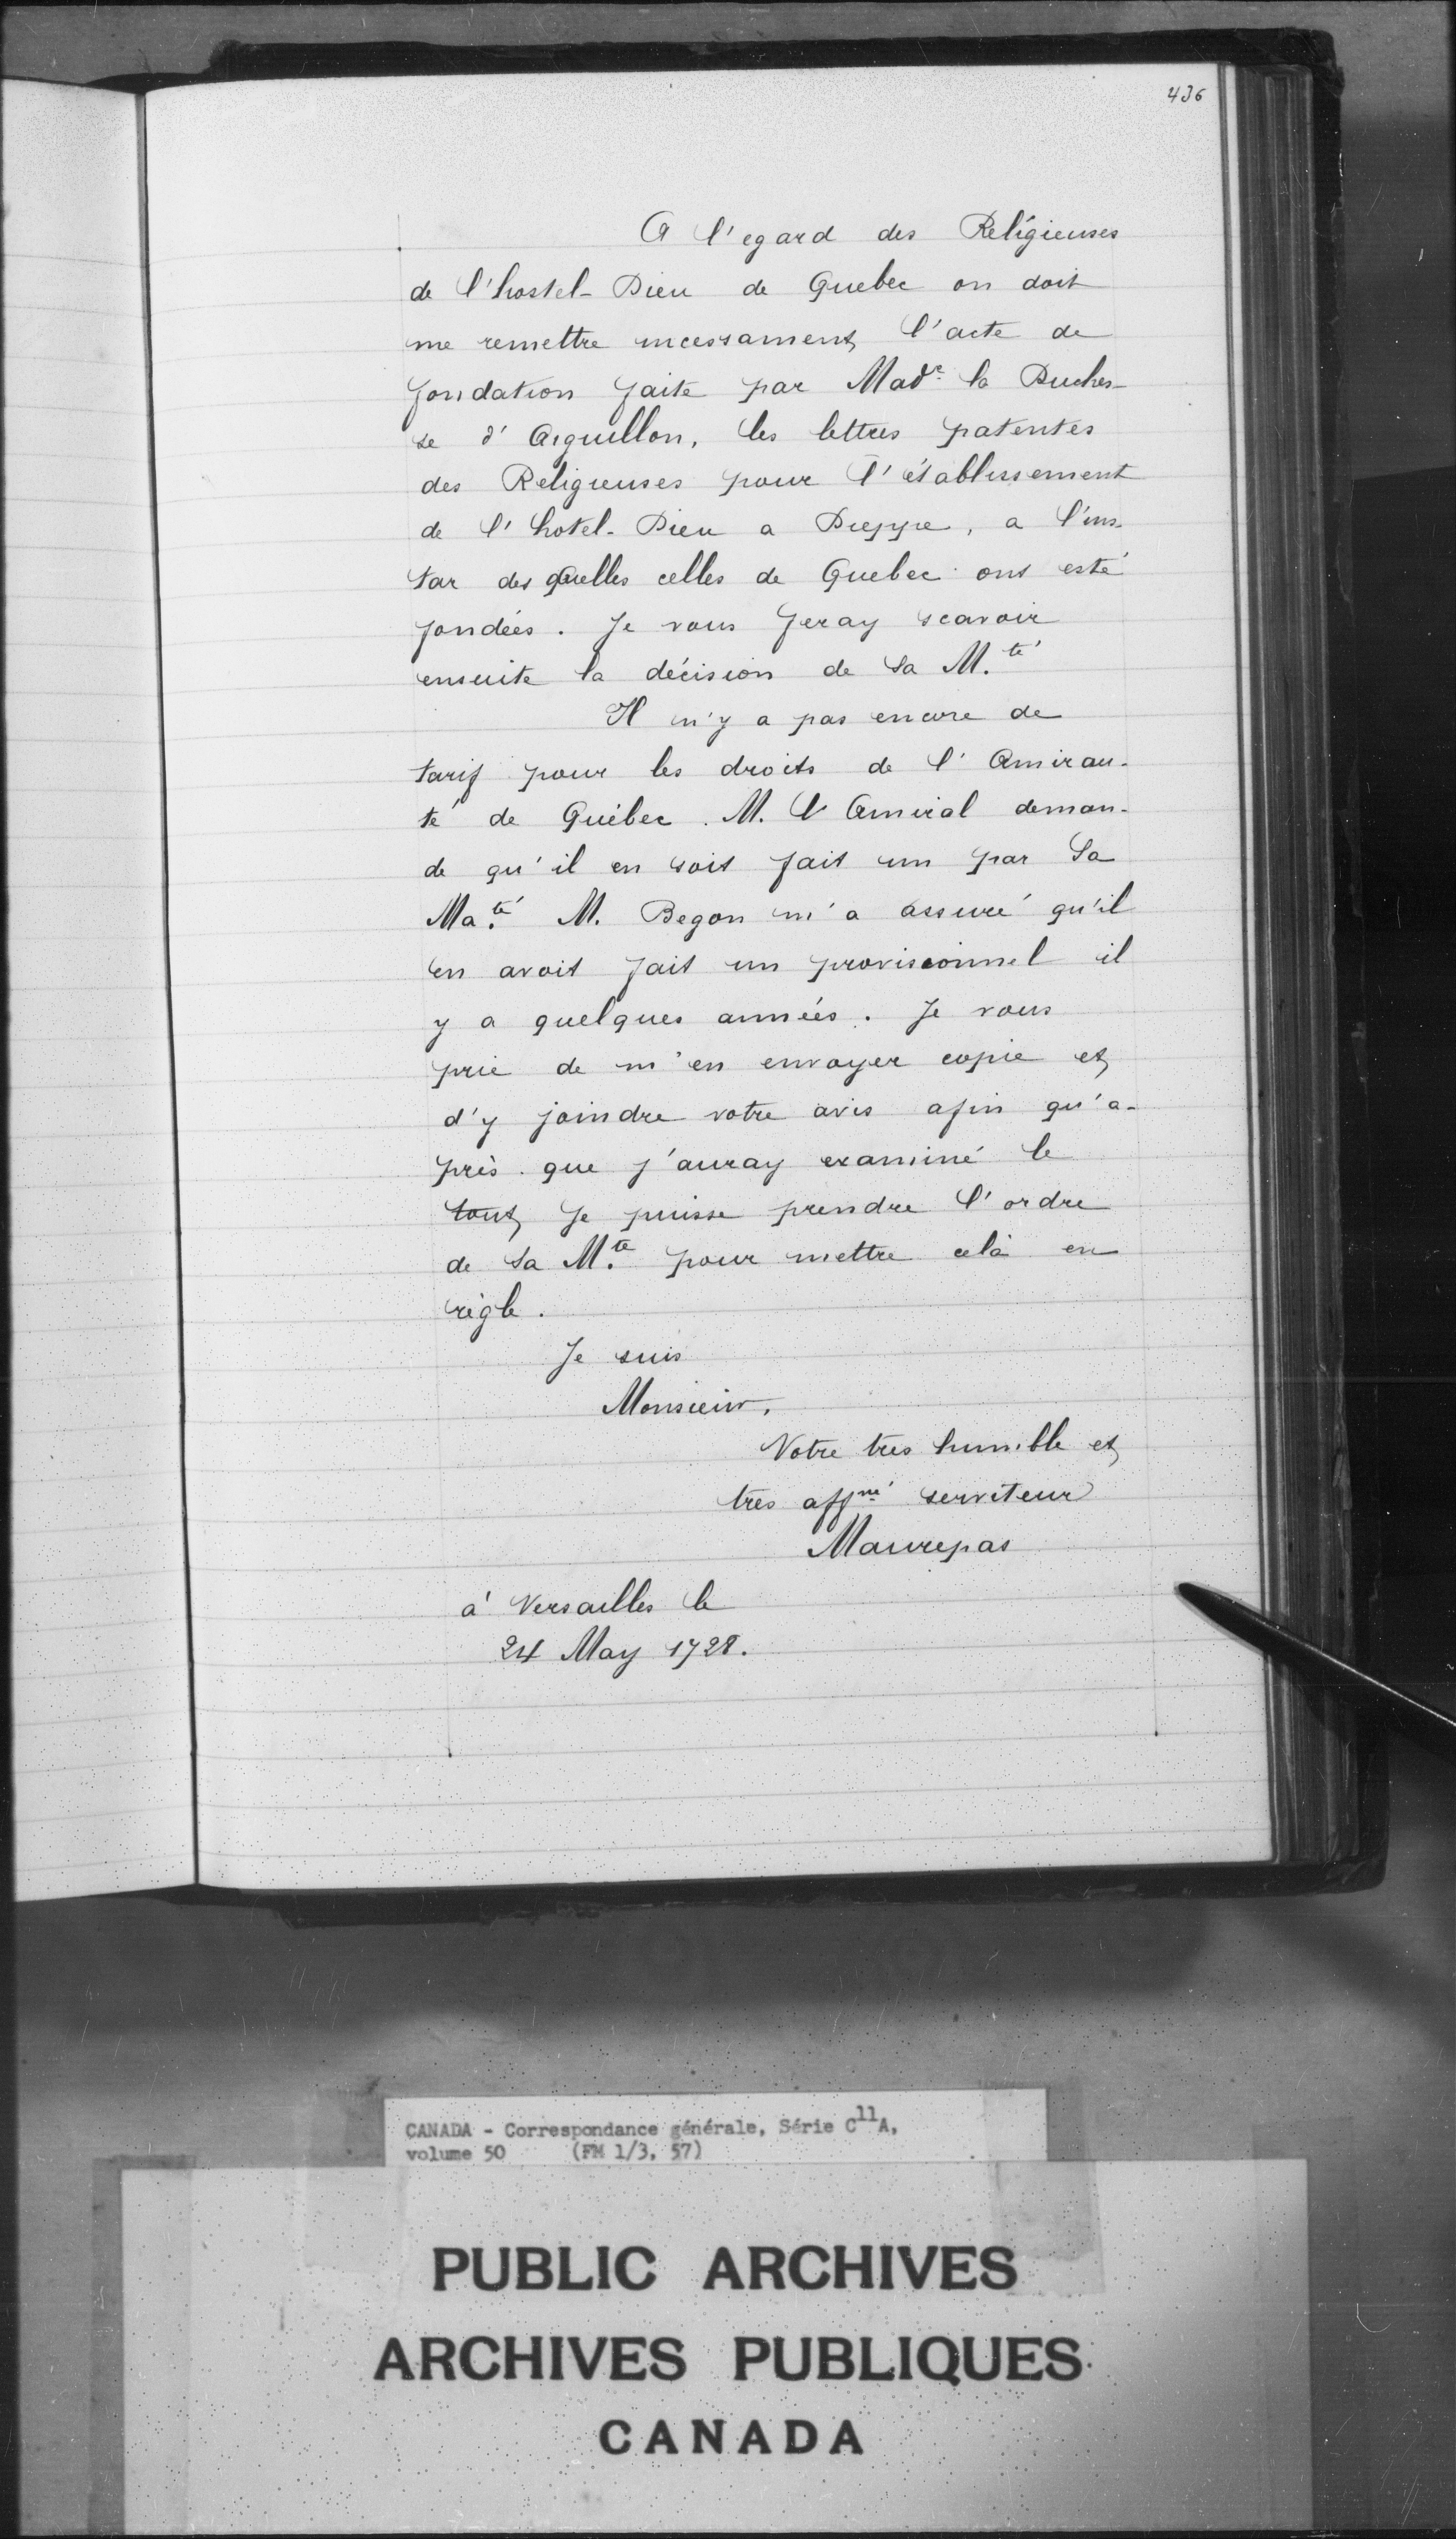 436
A l'egard des Religieuses
de l'hostel-Dieu de Quebec on doit
me remettre incessament l'acte de
fondation faite par Mad.e la Duches-
se d'Aiguillon, les lettres patentes
des Religieuses pour l'établissement
de l'hotel-Dieu a Dieppe, a l'ins-
tar des quelles celles de Quebec ont esté
fondées. Je vous feray scavoir
ensuite la décision de Sa M.té
Il n'y a pas encore de
tarif pour les droits de l'Amirau-
té de Québec. M. l'Amiral deman-
de qu'il en soit fait un par Sa
Ma.té M. Begon m'a assuré qu'il
en avoit fait un provisionnel il
y a quelques années. Je vous
prie de m'en envoyer copie et
d'y joindre votre avis afin qu'a-
près que j'auray examiné le
tout je puisse prendre l'ordre
de Sa M.té pour mettre celà en
règle.
Je suis
Monsieur,
Votre très humble et
très affné serviteur
Maurepas
à Versailles le
24 May 1728.
CANADA - Correspondance générale, Série C11A,
volume 50 (FM 1/3, 57)
PUBLIC ARCHIVES
ARCHIVES PUBLIQUES
CANADA